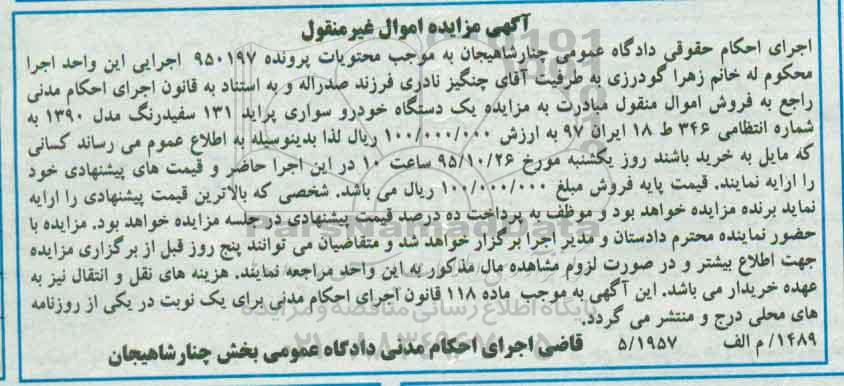 آگهی مزایده اموال غیرمنقول
اجرای احکام حقوقی دادگاه عمومی چنارشاهیجان به موجب محتویات پرونده ۹۵۰۱۹۷ اجرایی این واحد اجرا
محکوم له خانم زهرا گودرزی به طرفیت آقای چنگیز نادری فرزند صدراله و به استناد به قانون اجرای احکام مدنی
راجع به فروش اموال منقول مبادرت به مزایده یک دستگاه خودرو سواری پراید ۱۳۱ سفیدرنگ مدل ۱۳۹۰ به
شماره انتظامی ۳۴۶ ط ۱۸ ایران ۹۷ به ارزش ۱۰۰/۰۰۰/۰۰۰ ریال لذا بدینوسیله به اطلاع عموم می رساند کسانی
که مایل به خرید باشند روز یکشنبه مورخ ۹۵/۱۰/۲۶ ساعت ۱۰ در این اجرا حاضر و قیمت های پیشنهادی خود
را ارایه نمایند. قیمت پایه فروش مبلغ ۱۰۰/۰۰۰/۰۰۰ ریال می باشد. شخصی که بالاترین قیمت پیشنهادی را ارایه
نماید برنده مزایده خواهد بود و موظف به پرداخت ده درصد قیمت پیشنهادی در جلسه مزایده خواهد بود. مزایده با
حضور نماینده محترم دادستان و مدیر اجرا برگزار خواهد شد و متقاضیان می توانند پنج روز قبل از برگزاری مزایده
جهت اطلاع بیشتر و در صورت لزوم مشاهده مال مذکور به این واحد مراجعه نمایند. هزینه های نقل و انتقال نیز به
عهده خریدار می باشد. این آگهی به موجب ماده ۱۱۸ قانون اجرای احکام مدنی برای یک نوبت در یکی از روزنامه
های محلی درج و منتشر می گردد.
۱۴۸۹/ م الف ۵/۱۹۵۷ قاضی اجرای احکام مدنی دادگاه عمومی بخش چنارشاهیجان
ParsNamadData
پایگاه اطلاع رسانی مناقصه و مزایده